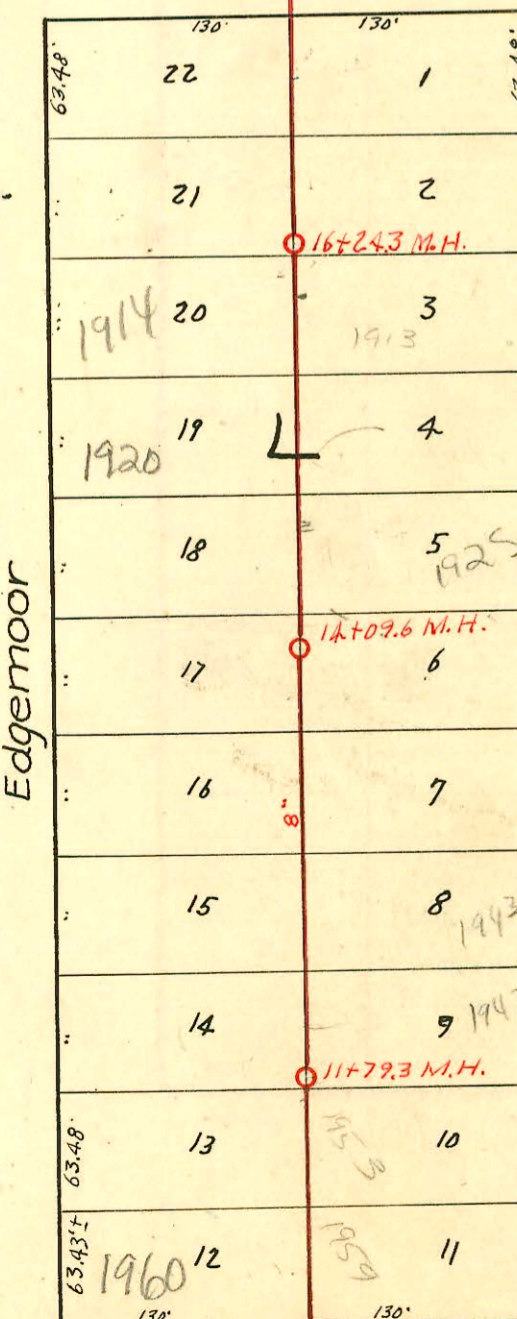 130' 130'
63.48' 22 1
21 2
16+24.3 M.H.
1914 20 3
1913
19 L 4
1920
18 5
1925
14+09.6 M.H.
Edgemoor
17 6
16 7
8"
15 8
1943
14 9
11+79.3 M.H.
63.48' 13 1953 10
63.43'± 1960 12 1959 11
130' 130'